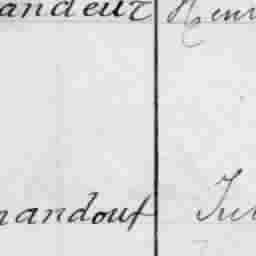 andeur Henr
nandouf Jul